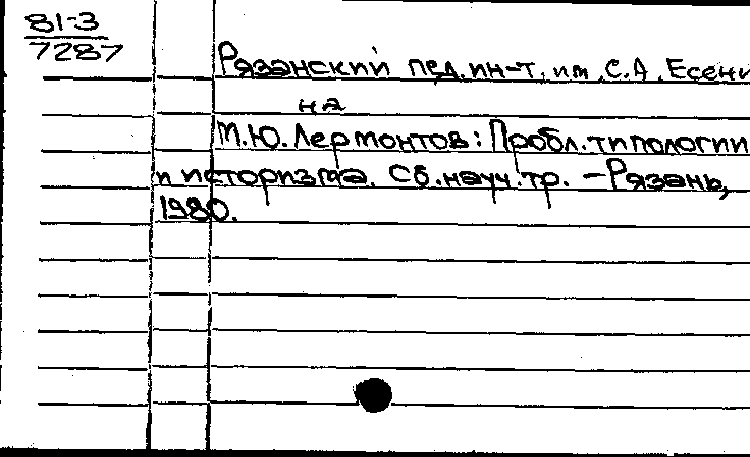 81-3
7287
Рязанский пед.ин-т. им. С.А. Есени
на
М.Ю. Лермонтов: Пробл. типологии
и историзма. Сб. науч. тр. – Рязань,
1980.